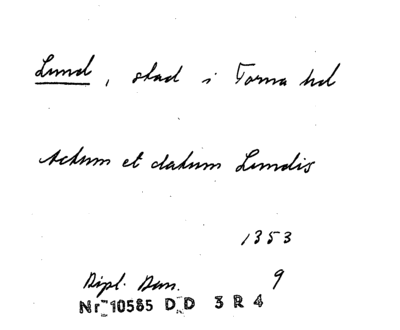 Lund, stad i Torna hd
Actum et datum Lundis
1353
Dipl. Dan. 9
Nr 10585 DD 3 R 4